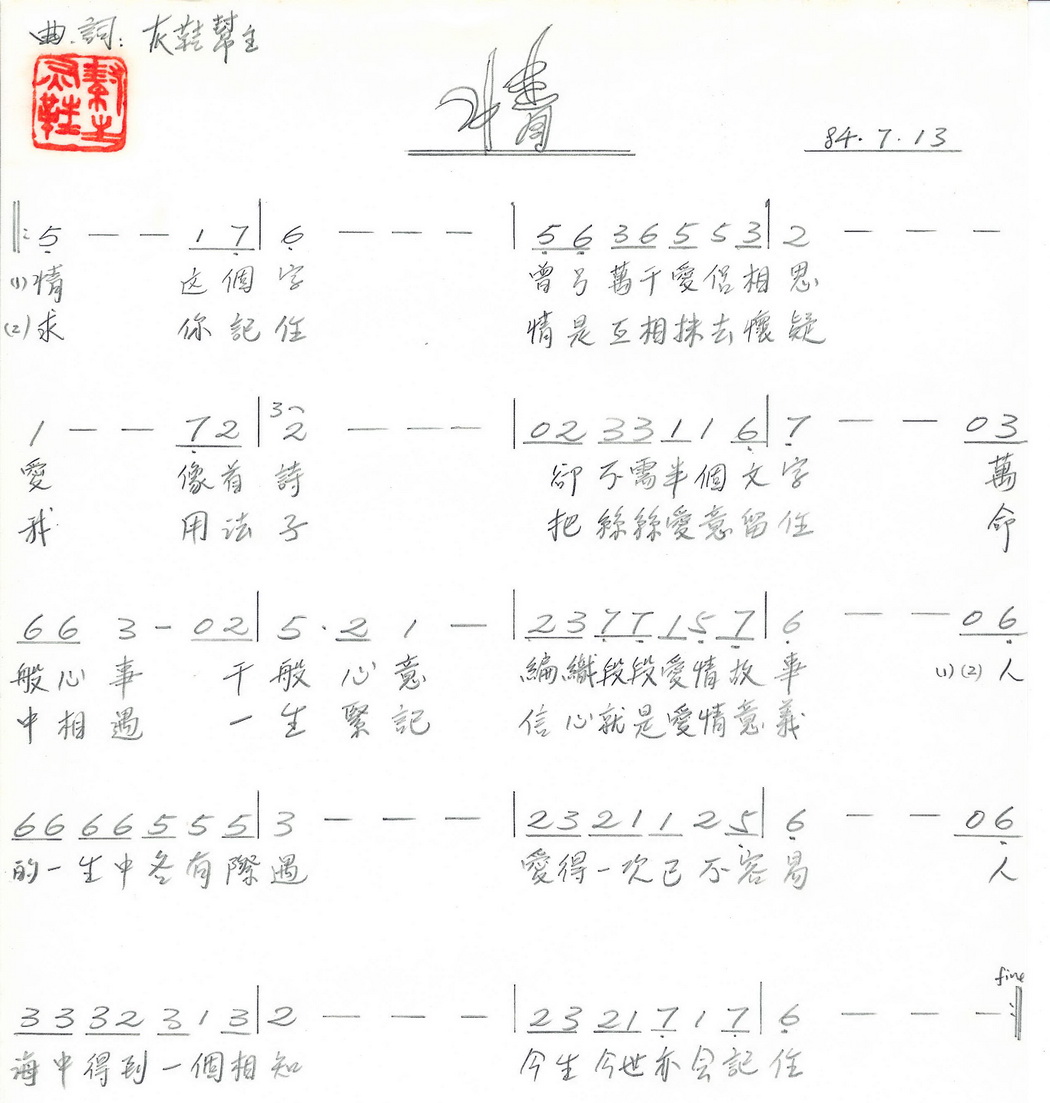 曲.詞: 灰鞋幫主
情
84.7.13
‖: 5 — — 1 7 | 6 — — — | 5 6 3 6 5 5 3 | 2 — — —
(1) 情 这個字 曾 萬千愛侶相思
(2) 求 你記住 情是互相抹去懷疑
1 — — 7 2 | 3 2 — — — | 0 2 3 3 1 1 6 | 7 — — 0 3
愛 像首詩 卻不需半個文字 萬
我 用法子 把絲絲愛意留住 命
6 6 3 - 0 2 | 5 · 2 1 — | 2 3 7 7 1 5 7 | 6 — — 0 6
般心事 千般心意 編織段段愛情故事 (1)(2) 人
中相遇 一生緊記 信心就是愛情意義
6 6 6 6 5 5 5 | 3 — — — | 2 3 2 1 1 2 5 | 6 — — 0 6
的一生中各有際遇 愛得一次已不容易 人
fine
3 3 3 2 3 1 3 | 2 — — — | 2 3 2 1 7 1 7 | 6 — — — :‖
海中得到一個相知 今生今世亦会記住